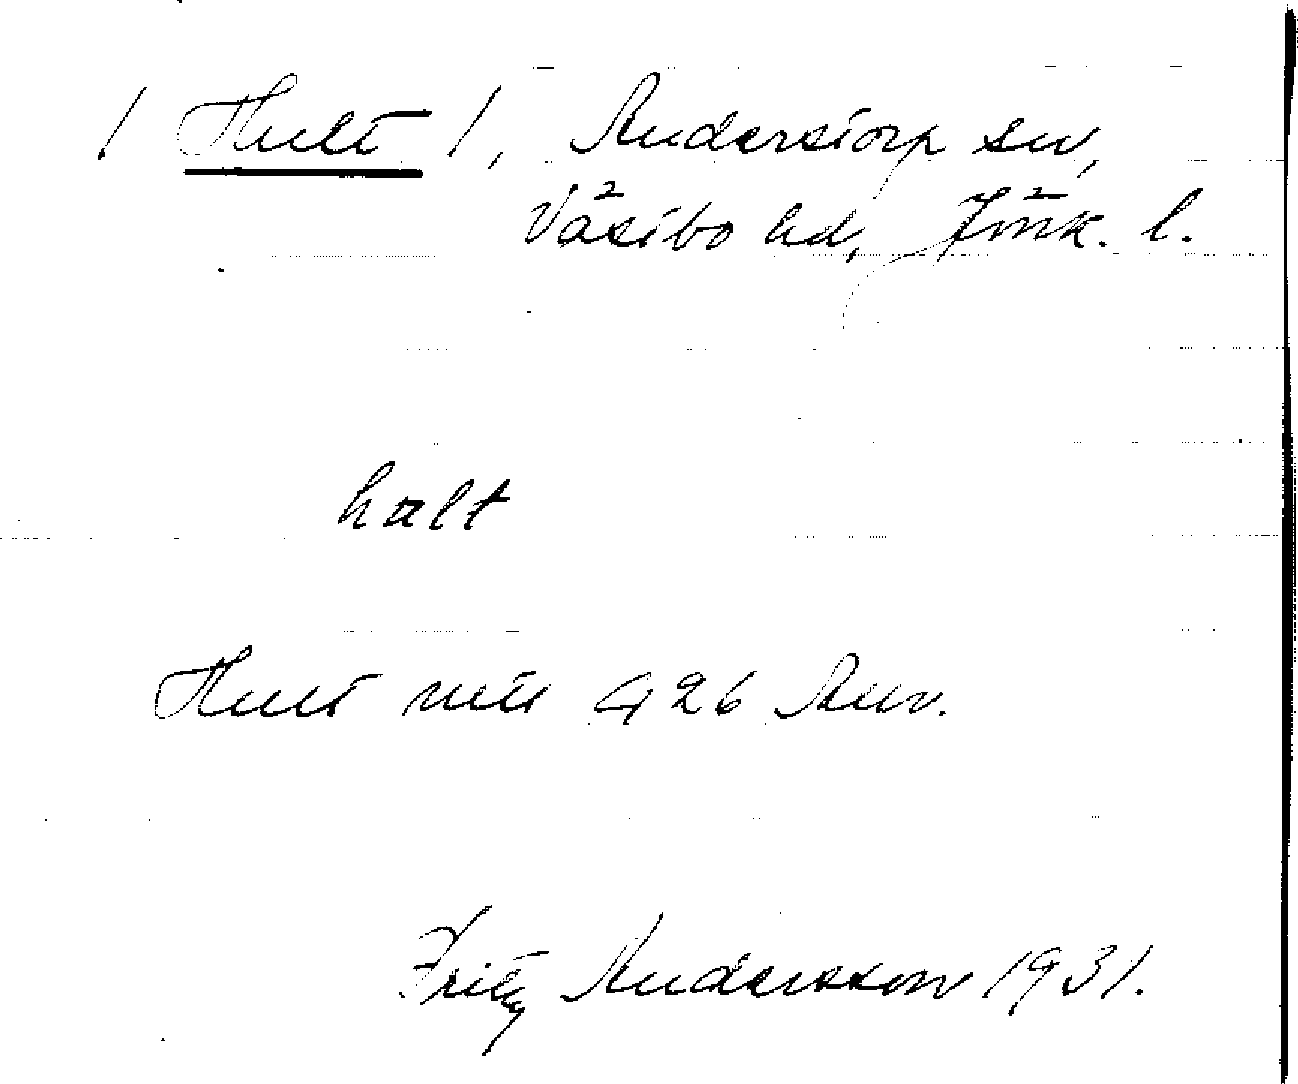 / Hult /, Anderstorp sn,
Västbo hd, Jönk. l.
halt
Hult 426
Fritz Andersson 1931.